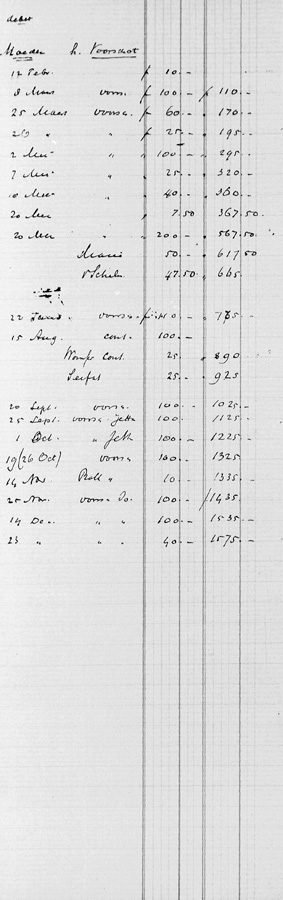 debet
Maeder h. Voorschot
14 Febr. f 10.–
8 Maart voors. f 100.– f 110.–
25 Maart voorsch. f 60.– „ 170.–
26 „ „ f 25.– „ 195.–
2 Mei „ „ 100.– „ 295.–
7 Mei „ „ 25.– „ 320.–
10 Mei „ „ 40.– „ 360.–
20 Mei „ 7.50 367.50.
20 Mei „ 200.– „ 567.50.
50.– „ 617.50
47.50 „ 665.
22 voorsch. 765.–
15 Aug. cont. 100.–
cont. 25. 890.–
25.– „ 925.
20 Sept. voorsch. 100.– 1025.–
25 Sept. voorsch. Jetta 100.– 1125.–
1 Oct. „ Jetta 100.– 1225.–
19 (26 Oct) voorsch 100.– 1325
14 Nov „ 10.– 1335.–
25 Nov. voorsch. Do. 100.– 1435.
14 De. „ „ 100.– 1535.–
23 „ „ „ 40.– 1575.–